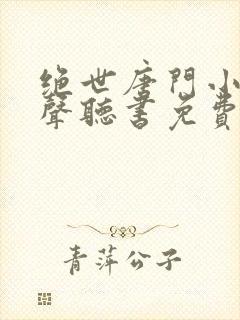 绝世唐門小
聲聽書免費
青萍公子